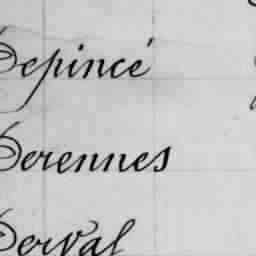 Depincé
Derennes
Derval